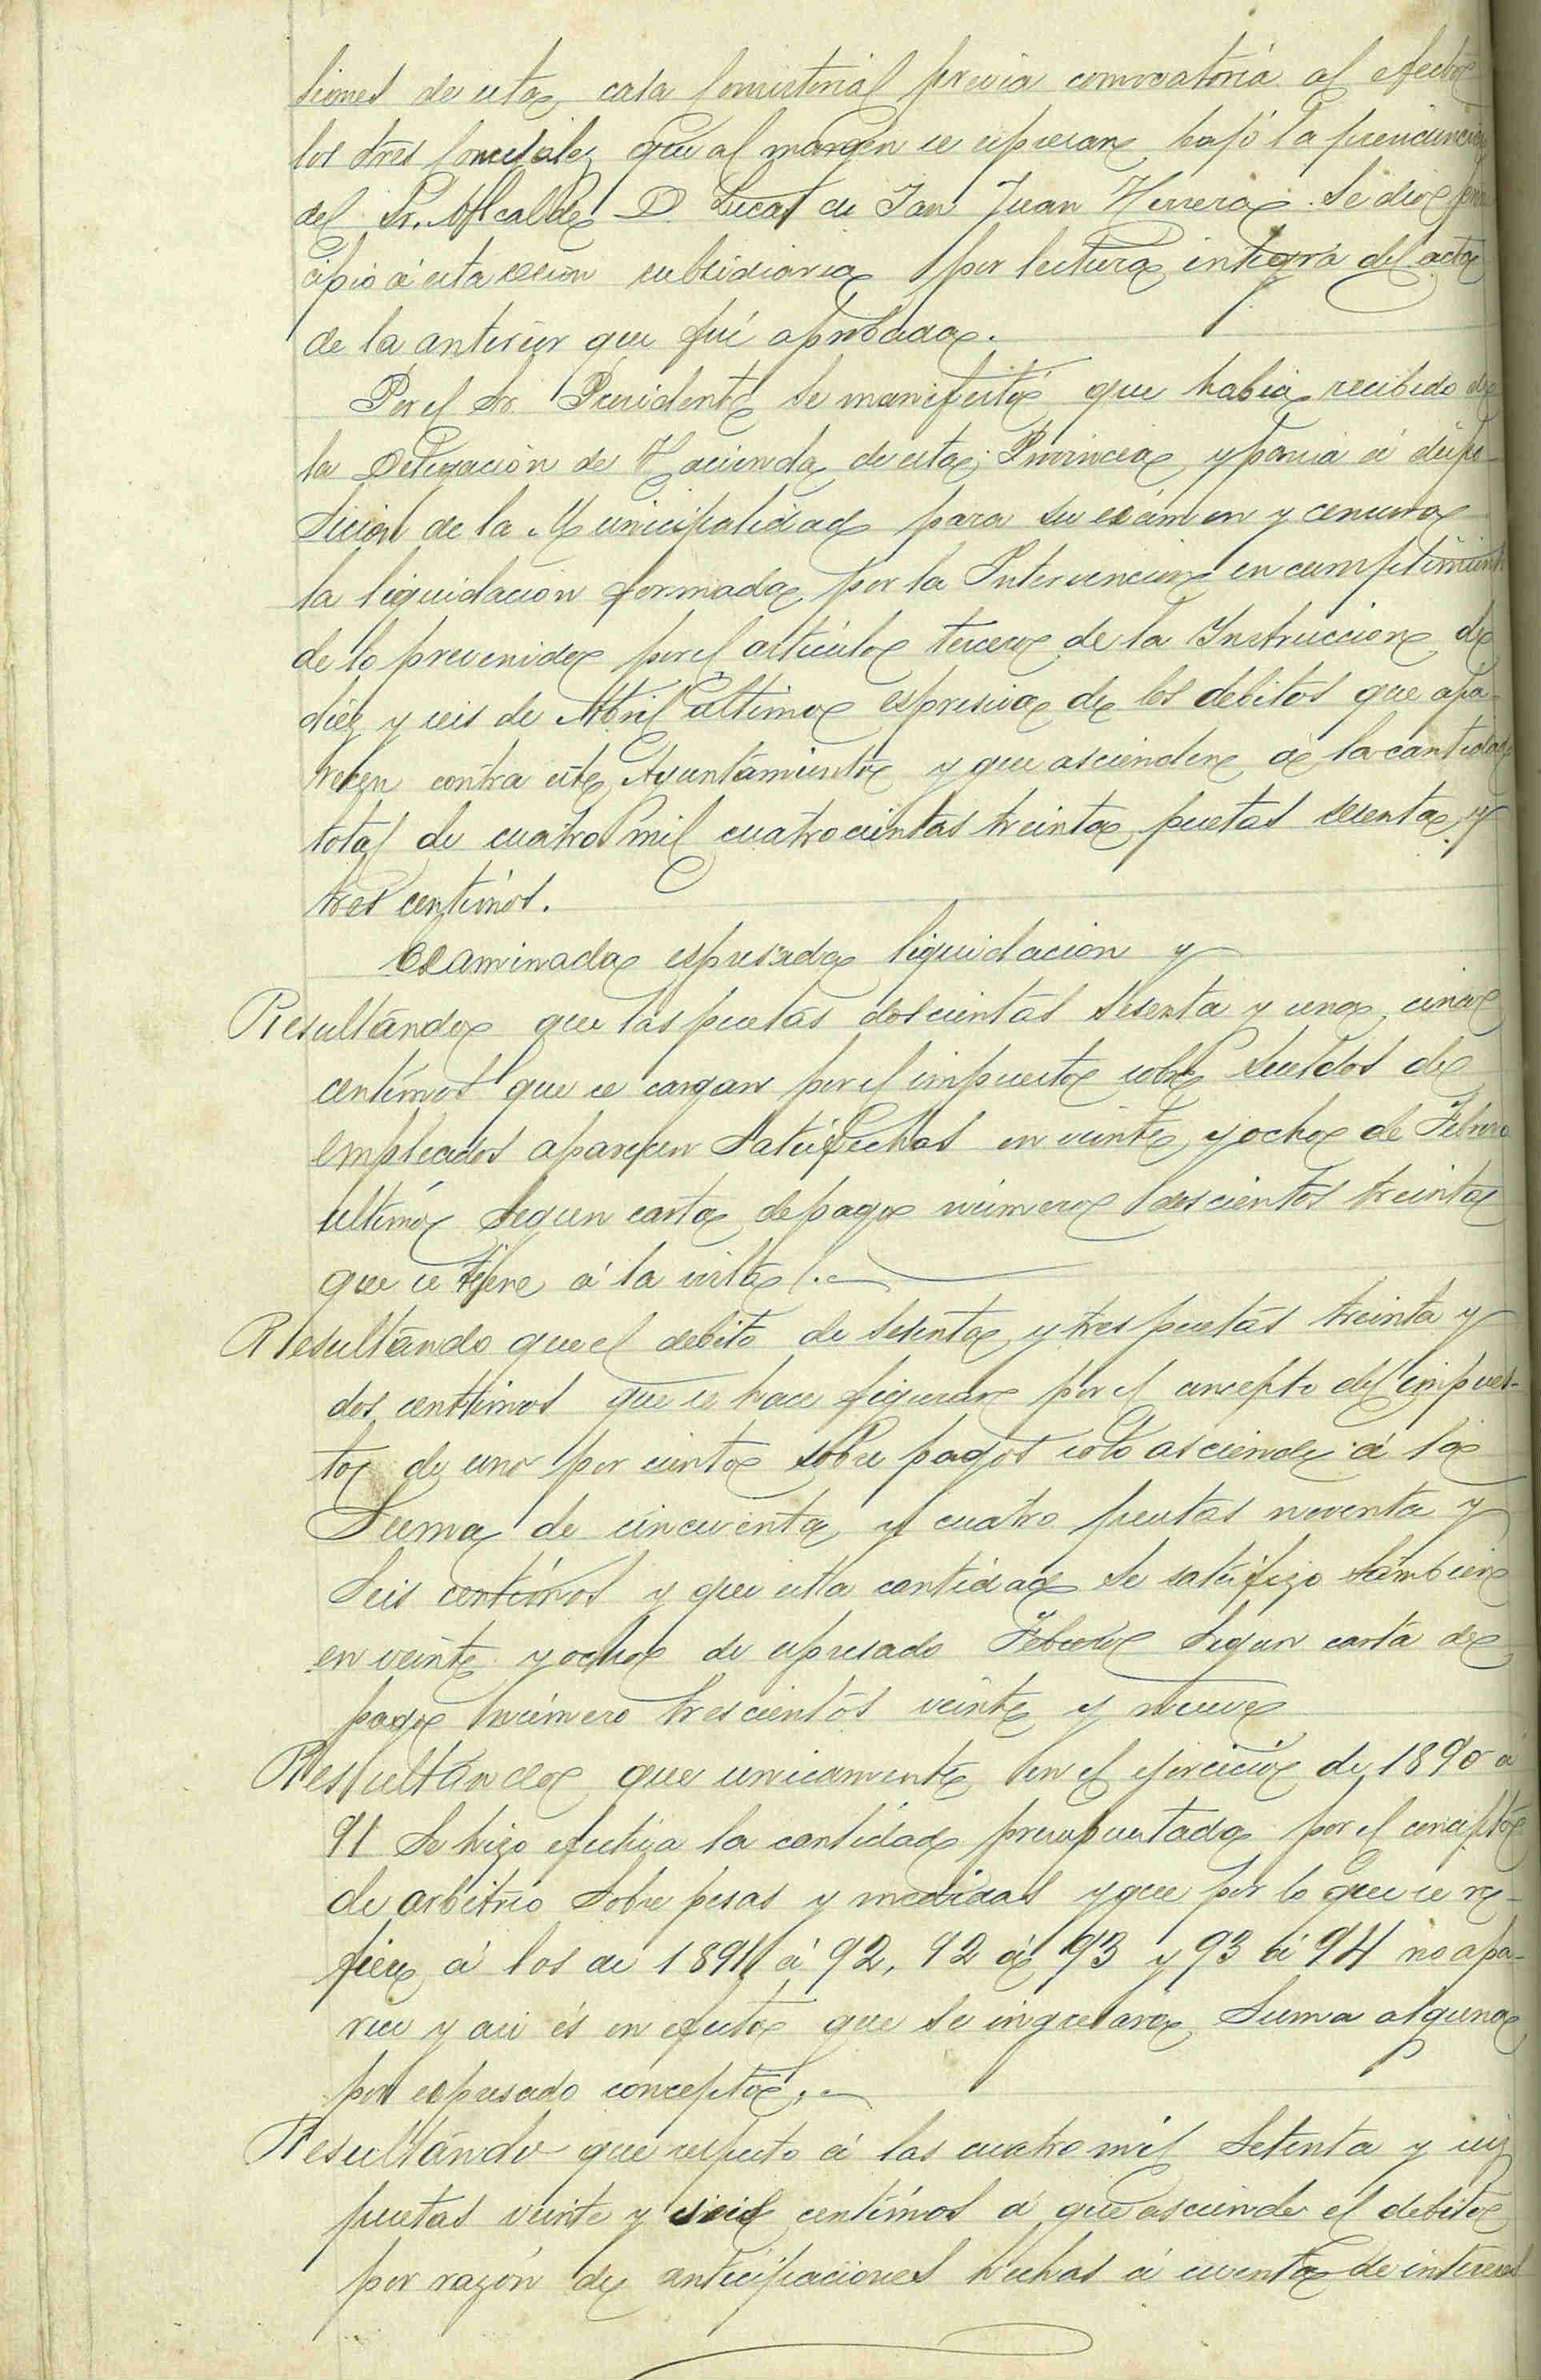 siones de esta casa Consistorial previa convocatoria al efecto
los tres Concejales que al margen se espresan bajo la presidencia
del Sr. Alcalde D. Lucas de San Juan Herrera. Se dio prin
cipio á esta sesion subsidiaria por lectura integra del acta
de la anterior que fué aprobada.
Por el Sr. Presidente se manifestó que habia recibido de
la Delegación de Hacienda de esta Provincia y ponia á dispo-
sicion de la Municipalidad para su exámen y censura
la liquidación formada por la Intervencion en cumplimiento
de lo prevenido por el artículo tercero de la Instruccion de
diez y seis de Abril último espresiva de los debitos que apa-
recen contra este Ayuntamiento y que ascienden á la cantidad
total de cuatro mil cuatrocientas treinta pesetas sesenta y
tres centimos.
Examinada espresada liquidacion y
Resultando que las pesetas doscientas sesenta y una, cinco
centimos que se cargan por el impuesto sobre sueldos de
empleados aparecen satisfechas en veinte y ocho de Febrero
ultimo segun carta de pago número trescientos treinta
que se tiene á la vista.
Resultando que el debito de sesenta y tres pesetas treinta y
dos centimos que se hace figurar por el concepto del impues-
to de uno por ciento sobre pagos solo asciende á la
Suma de cincuenta y cuatro pesetas noventa y
seis centimos y que esta cantidad se satisfizo tambien
en veinte y ocho de espresado Febrero segun carta de
pago número trescientos veinte y nueve
Resultando que unicamente en el ejercicio de 1890 á
91 se hizo efectiva la cantidad presupuestada por el concepto
de arbitrio sobre pesas y medidas y que por lo que se re-
fiere á los de 1891 á 92, 92 á 93 y 93 á 94 no apa-
rece y asi és en efecto que se ingresara suma alguna
por espresado concepto.
Resultando que respecto á las cuatro mil setenta y seis
pesetas veinte y seis centimos á que asciende el debito
por razón de anticipaciones hechas á cuenta de intereses